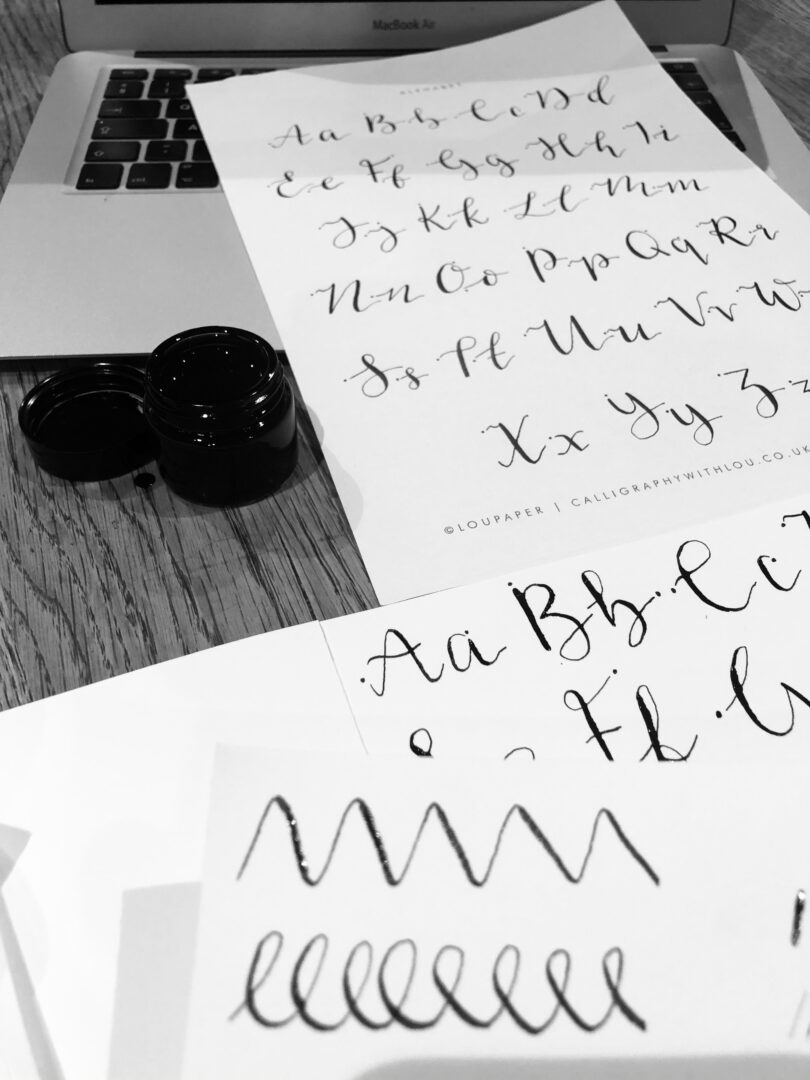 MacBook Air
ALPHABET
Aa Bb Cc Dd
Ee Ff Gg Hh Ii
Jj Kk Ll Mm
Nn Oo Pp Qq Rr
Ss Tt Uu Vv W
Xx Yy Zz
©LOUPAPER | CALLIGRAPHYWITHLOU.CO.UK
Aa Bb Cc
Ff G